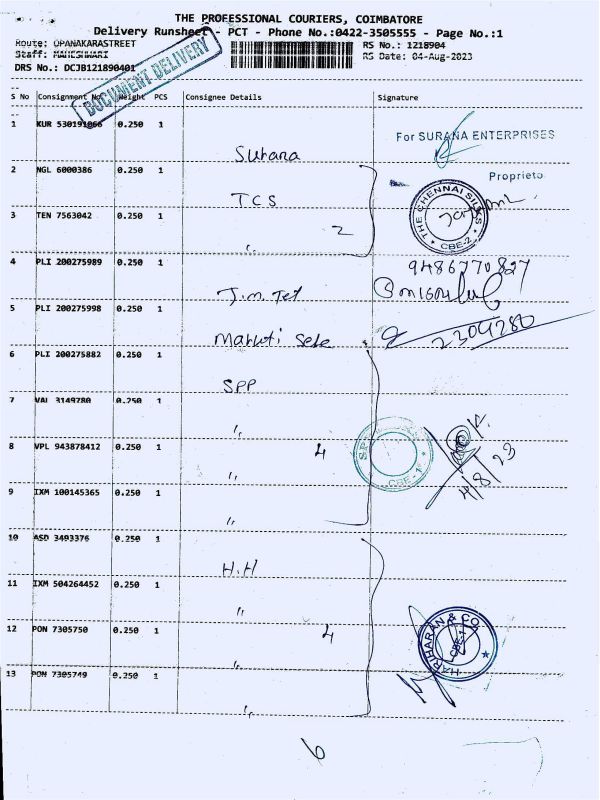 THE PROFESSIONAL COURIERS, COIMBATORE
Delivery Runsheet - PCT - Phone No.:0422-3505555 - Page No.:1
Route: OPANAKARASTREET
RS No.: 1218904
Staff: MAHESHWARI
RS Date: 04-Aug-2023
DRS No.: DCJB121890401
DOCUMENT DELIVERY
S No Consignment No Weight PCS Consignee Details Signature
1 KUR 530191066 0.250 1
For SURANA ENTERPRISES
Surana
2 NGL 6000386 0.250 1
Proprieto
TCS
THE CHENNAI SILKS
CBE-2
3 TEN 7563042 0.250 1
2
"
4 PLI 200275989 0.250 1
9486770827
J.m. Tet
5 PLI 200275998 0.250 1
Maruti Sele
2304280
6 PLI 200275882 0.250 1
SPP
7 VAL 3149780 0.250 1
"
4
CBE-1
8 VPL 943878412 0.250 1
"
4/8/23
9 IXM 100145365 0.250 1
"
10 ASD 3493376 0.250 1
H.H
11 IXM 504264452 0.250 1
"
12 PON 7305750 0.250 1
4
HARIHARAN & CO
CBE-1
"
13 PON 7305749 0.250 1
"
6